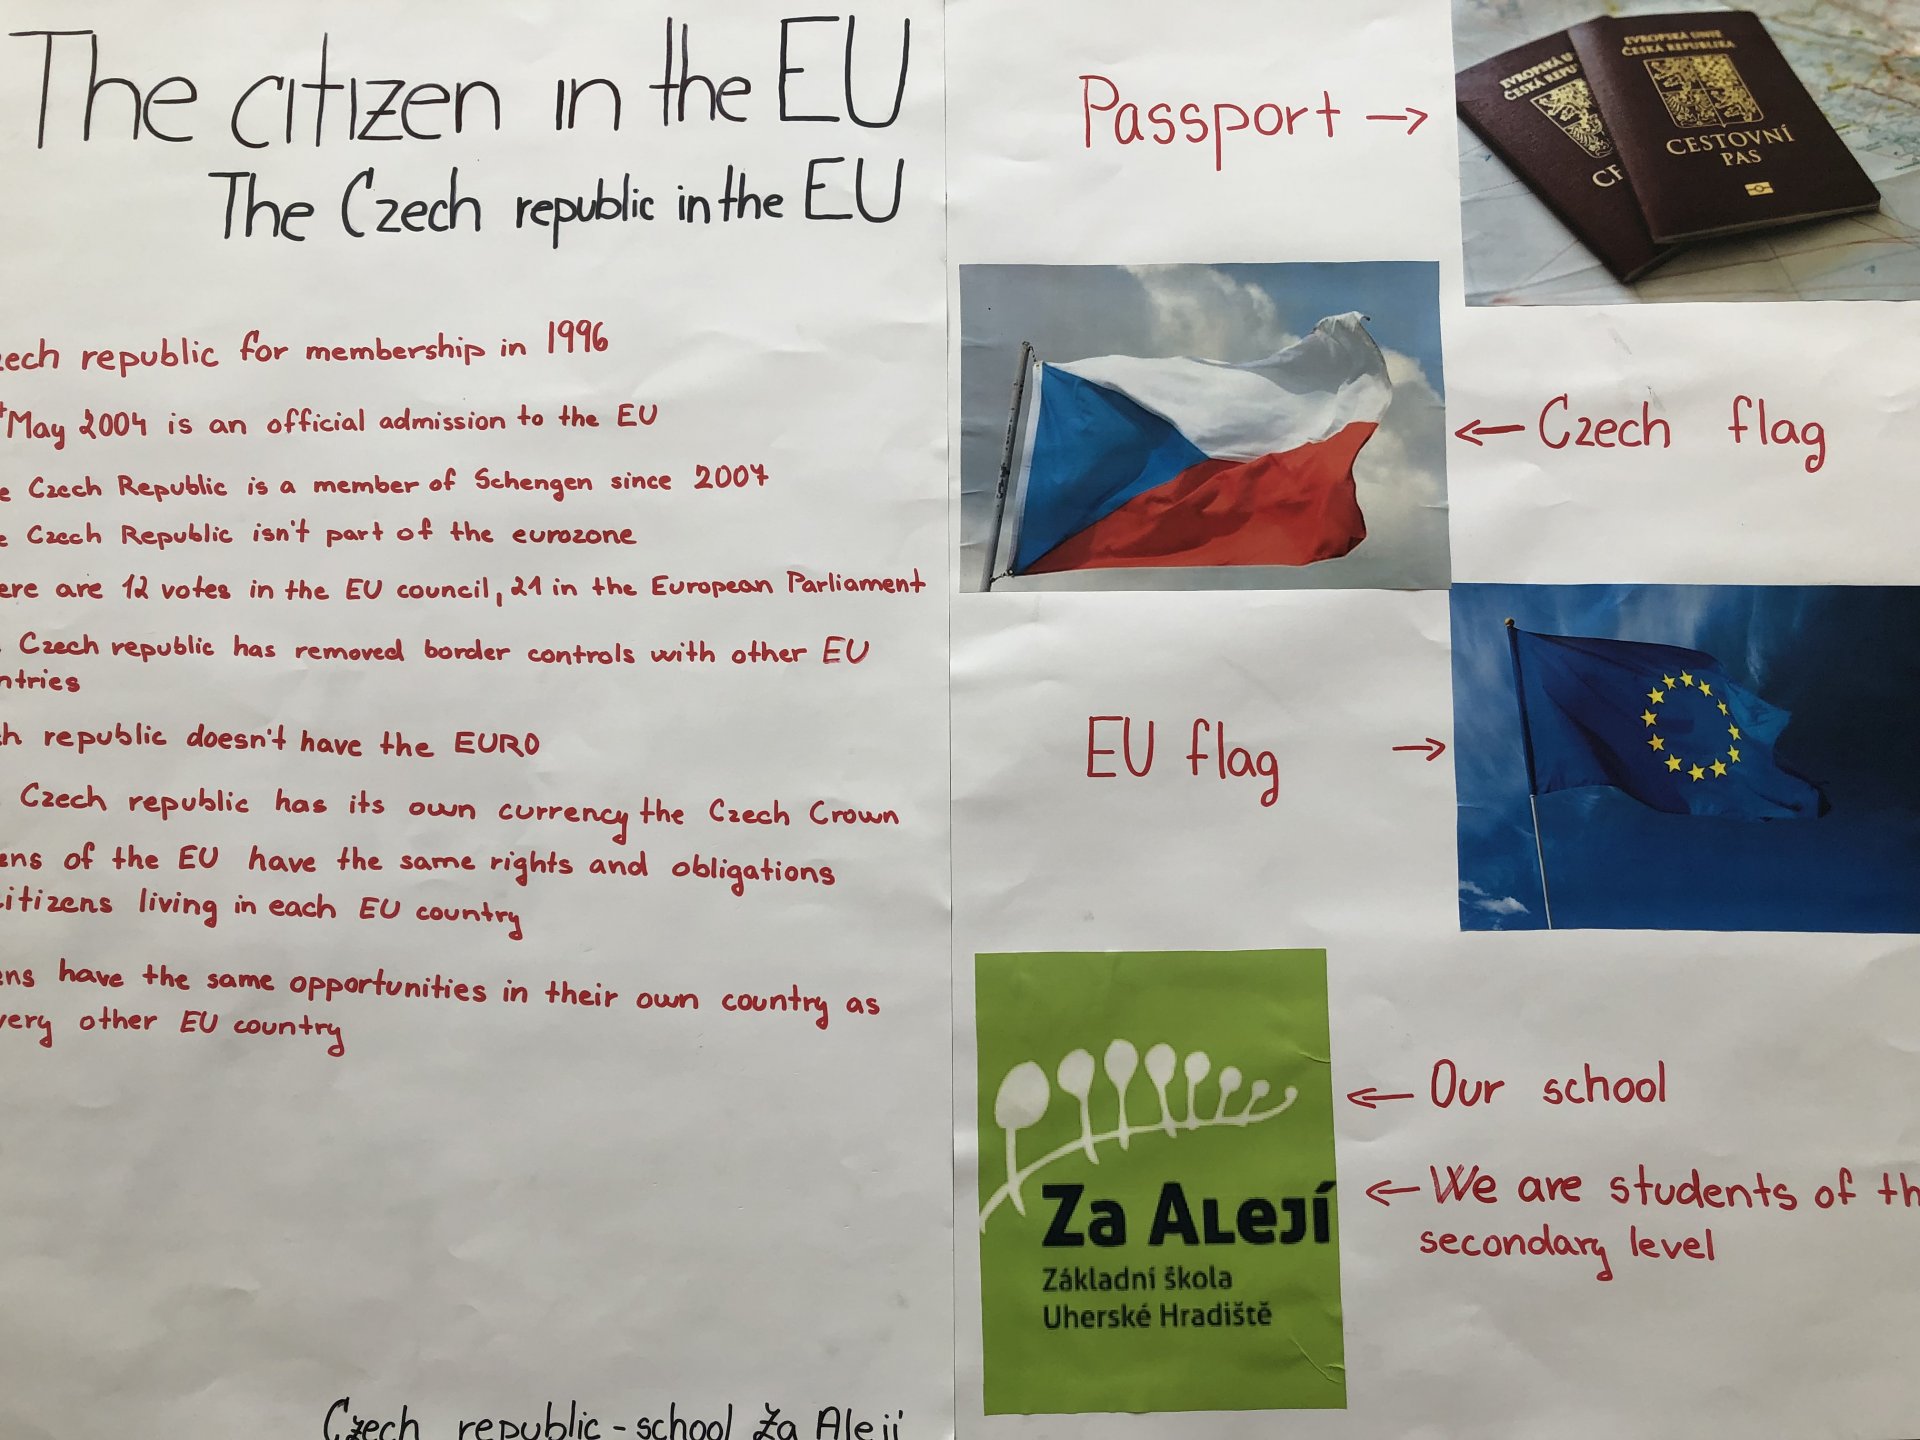 The citizen in the EU
The Czech republic in the EU
zech republic for membership in 1996
May 2004 is an official admission to the EU
e Czech Republic is a member of Schengen since 2007
e Czech Republic isn't part of the eurozone
ere are 12 votes in the EU council, 21 in the European Parliament
Czech republic has removed border controls with other EU
ntries
ch republic doesn't have the EURO
Czech republic has its own currency the Czech Crown
ens of the EU have the same rights and obligations
citizens living in each EU country
ens have the same opportunities in their own country as
very other EU country
Czech republic - school Za Alejí
Passport →
EVROPSKÁ U
ČESKÁ REPU
EVROPSKÁ UNIE
ČESKÁ REPUBLIKA
CESTOVNÍ
PAS
← Czech flag
EU flag →
← Our school
← We are students of th
secondary level
Za Alejí
Základní škola
Uherské Hradiště